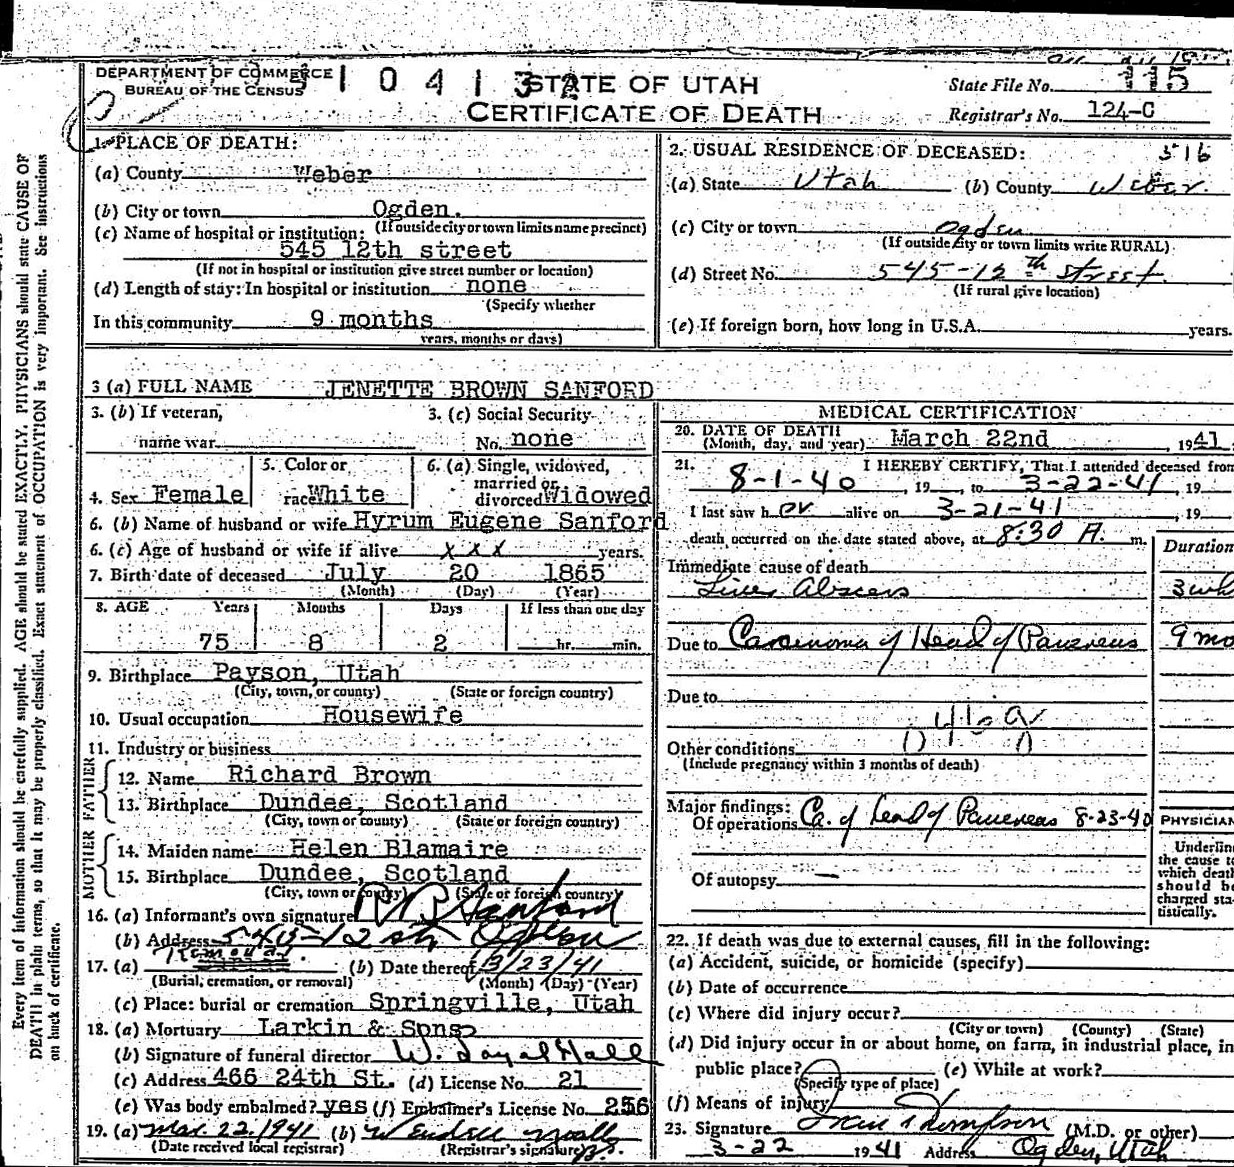 DEPARTMENT OF COMMERCE
BUREAU OF THE CENSUS
STATE OF UTAH
CERTIFICATE OF DEATH
State File No. 115
Registrar's No. 124-C
1. PLACE OF DEATH:
(a) County Weber
(b) City or town Ogden.
(If outside city or town limits name precinct)
(c) Name of hospital or institution:
545 12th street
(If not in hospital or institution give street number or location)
(d) Length of stay: In hospital or institution none
(Specify whether
In this community 9 months
years, months or days)
2. USUAL RESIDENCE OF DECEASED: 516
(a) State Utah (b) County Weber.
(c) City or town Ogden
(If outside city or town limits write RURAL)
(d) Street No. 545-12th street
(If rural give location)
(e) If foreign born, how long in U.S.A. years.
3 (a) FULL NAME JENETTE BROWN SANFORD
3. (b) If veteran,
name war
3. (c) Social Security
No. none
4. Sex Female
5. Color or
race White
6. (a) Single, widowed,
married or
divorced Widowed
6. (b) Name of husband or wife Hyrum Eugene Sanford
6. (c) Age of husband or wife if alive x x x years.
7. Birth date of deceased July 20 1865
(Month) (Day) (Year)
8. AGE Years Months Days If less than one day
75 8 2 hr. min.
9. Birthplace Payson, Utah
(City, town, or county) (State or foreign country)
10. Usual occupation Housewife
11. Industry or business
FATHER
12. Name Richard Brown
13. Birthplace Dundee, Scotland
(City, town or county) (State or foreign country)
MOTHER
14. Maiden name Helen Blamaire
15. Birthplace Dundee, Scotland
(City, town or county) (State or foreign country)
16. (a) Informant's own signature Sanford
(b) Address 545-12 st Ogden
17. (a) Removal (b) Date thereof 3/23/41
(Burial, cremation, or removal) (Month) (Day) (Year)
(c) Place: burial or cremation Springville, Utah
18. (a) Mortuary Larkin & Sons
(b) Signature of funeral director W. Loyal Hall
(c) Address 466 24th St. (d) License No. 21
(e) Was body embalmed? yes (f) Embalmer's License No. 256
19. (a) Mar. 22, 1941 (b) Wendell
(Date received local registrar) (Registrar's signature)
MEDICAL CERTIFICATION
20. DATE OF DEATH
(Month, day, and year) March 22nd, 1941
21. I HEREBY CERTIFY, That I attended deceased from
8-1-40, 19 , to 3-22-41, 19
I last saw her alive on 3-21-41, 19
death occurred on the date stated above, at 8:30 A. m.
Duration
Immediate cause of death
Liver Abscess 3 wk
Due to Carcinoma of Head of Pancreas 9 mo
Due to
Other conditions
(Include pregnancy within 3 months of death)
Major findings:
Of operations Ca. of head of Pancreas 8-23-40
Of autopsy —
PHYSICIAN
Underline
the cause to
which death
should be
charged sta-
tistically.
22. If death was due to external causes, fill in the following:
(a) Accident, suicide, or homicide (specify)
(b) Date of occurrence
(c) Where did injury occur?
(City or town) (County) (State)
(d) Did injury occur in or about home, on farm, in industrial place, in
public place? (e) While at work?
(Specify type of place)
(f) Means of injury
23. Signature Thompson (M.D. or other)
3-22 1941 Address Ogden, Utah
Every item of information should be carefully supplied. AGE should be stated EXACTLY. PHYSICIANS should state CAUSE OF
DEATH in plain terms, so that it may be properly classified. Exact statement of OCCUPATION is very important. See instructions
on back of certificate.